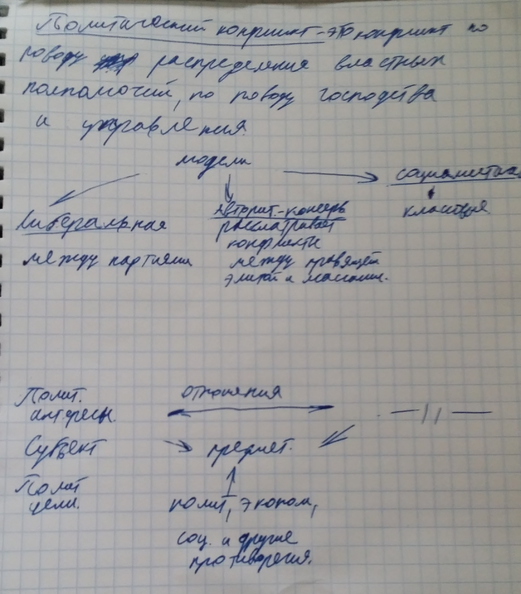 Политический конфликт - это конфликт по
поводу распределения властных
полномочий, по поводу господства
и управления.
модели
Либеральная
между партиями
Авторит.-консерв
рассматривает
конфликты
между правящей
элитой и массами.
социалистич
классовые
Полит.
интересы.
Субъект
Полит
цели.
отношения
предмет.
полит, эконом,
соц. и другие
противоречия.
— || —